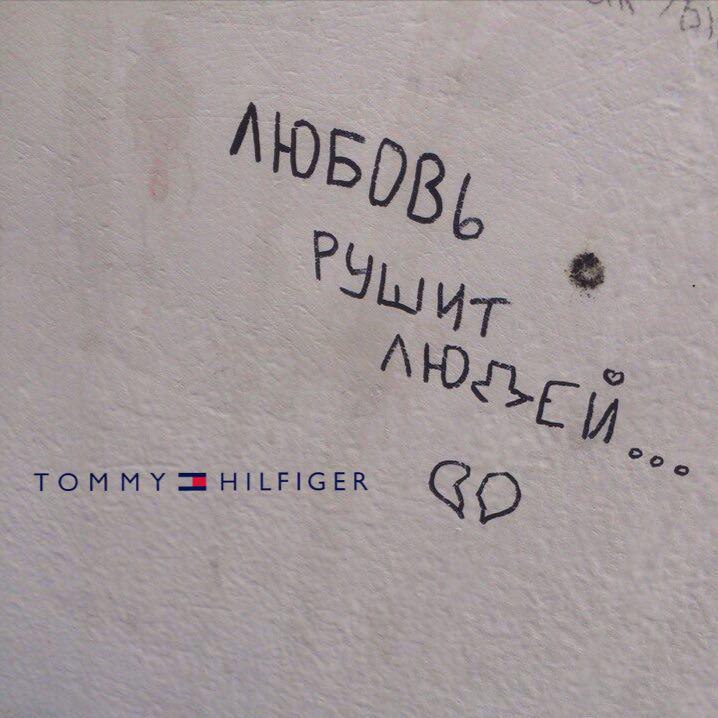 ЛЮБОВЬ
РУШИТ
ЛЮДЕЙ...
TOMMY HILFIGER